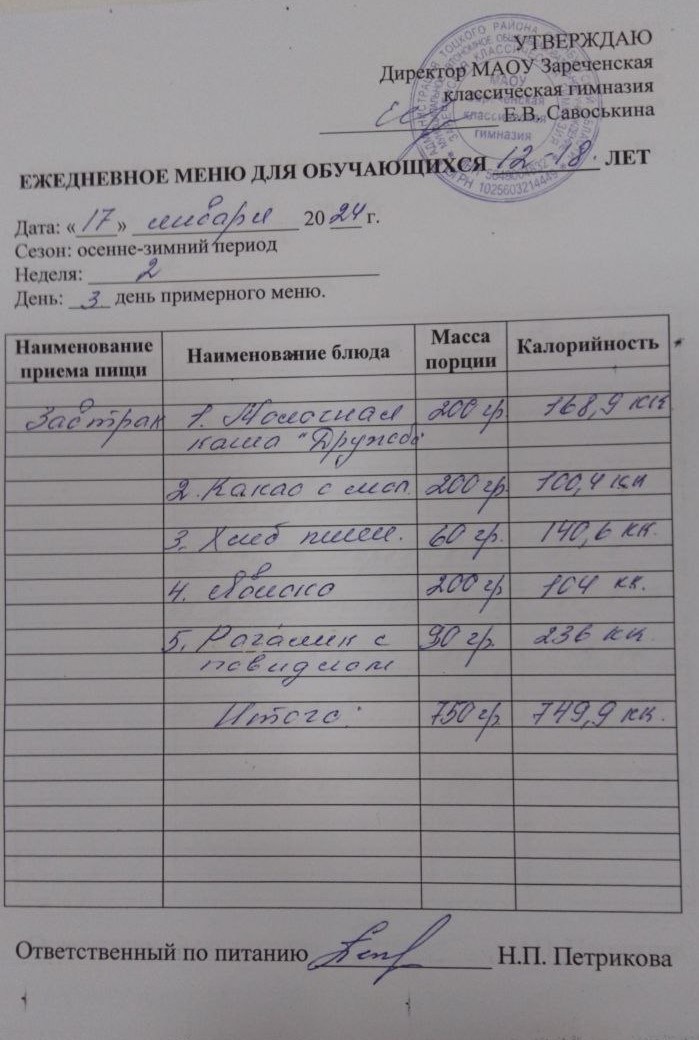 УТВЕРЖДАЮ
Директор МАОУ Зареченская
классическая гимназия
Е.В. Савоськина
МАОУ
Зареченская
классическая
гимназия
ОГРН 1025603214449
ЕЖЕДНЕВНОЕ МЕНЮ ДЛЯ ОБУЧАЮЩИХСЯ 12-18. ЛЕТ
Дата: «17» января 2024 г.
Сезон: осенне-зимний период
Неделя: 2
День: 3 день примерного меню.
Наименование приема пищи Наименование блюда Масса порции Калорийность
Завтрак 1. Молочная 200 гр. 168,9 кк
каша "Дружба"
2. Какао с мол. 200 гр. 100,4 кк
3. Хлеб пшен. 60 гр. 140,6 кк.
4. Яблоко 200 гр 104 кк.
5. Рогалик с 90 гр. 236 кк.
повидлом
Итого: 750 гр. 749,9 кк.
Ответственный по питанию Н.П. Петрикова